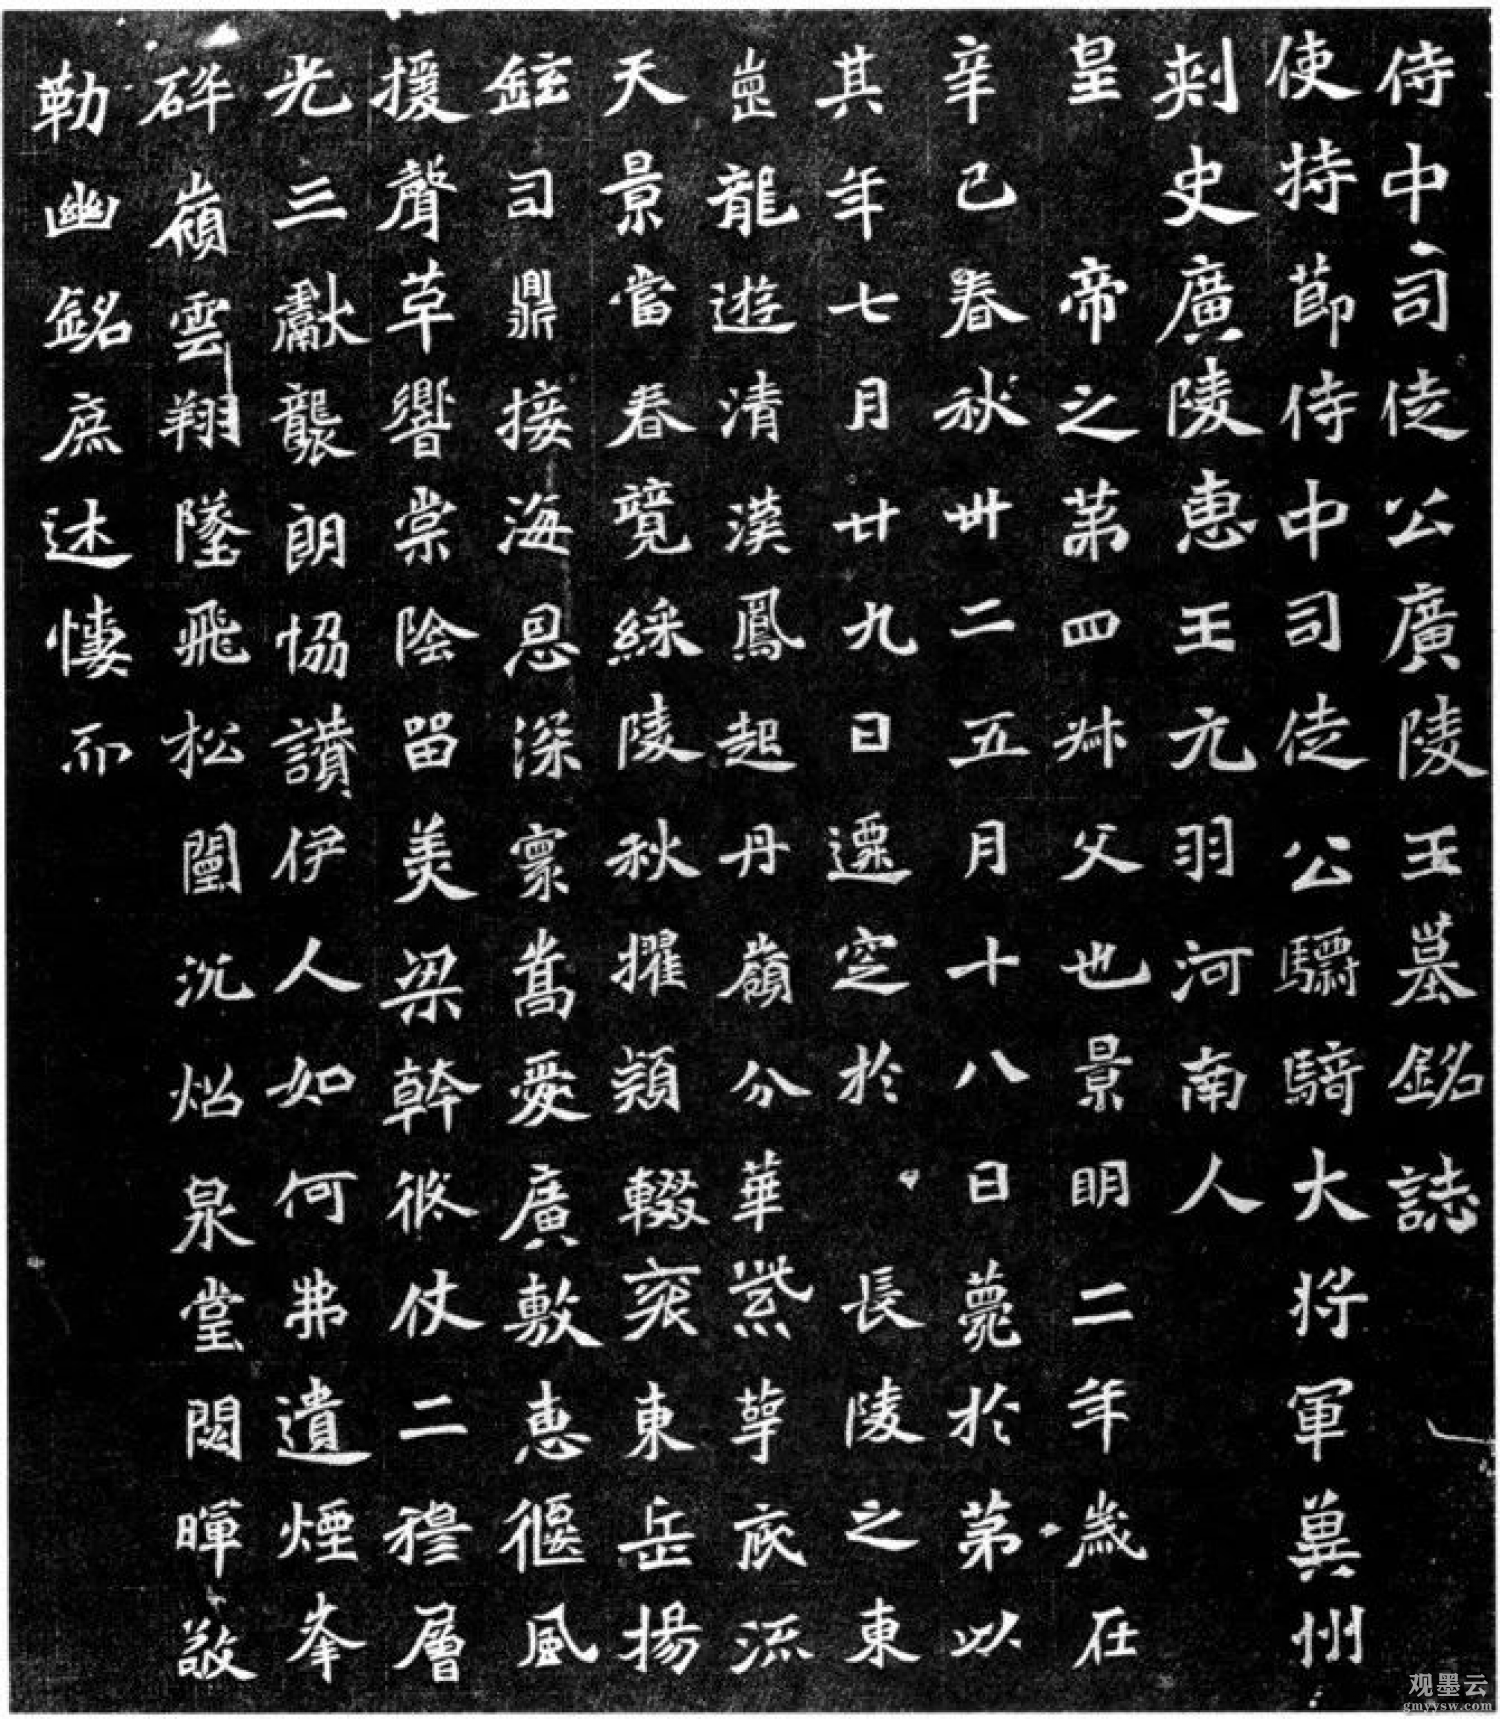 侍中司徒公廣陵王墓銘誌
使持節侍中司徒公驃騎大將軍冀州
刺史廣陵惠王元羽河南人
皇帝之第四叔父也景明二年歲在
辛巳春秋卅二五月十八日薨於第以
其年七月廿九日遷窆於長陵之東
崗龍遊清漢鳳起丹嶺分華紫萼底流
天景當春競綵陵秋擢穎輟袞東岳揚
鉉司鼎接海恩深寮嵩愛廣敷惠偃風
援聲草響棠陰留美梁幹徙仗二穆層
光三獻襲朗協讚伊人如何弗遺煙峯
碎嶺雲翔墜飛松闈沉炤泉堂閟暉敬
勒幽銘庶述悽而
观墨云
gmyysw.com